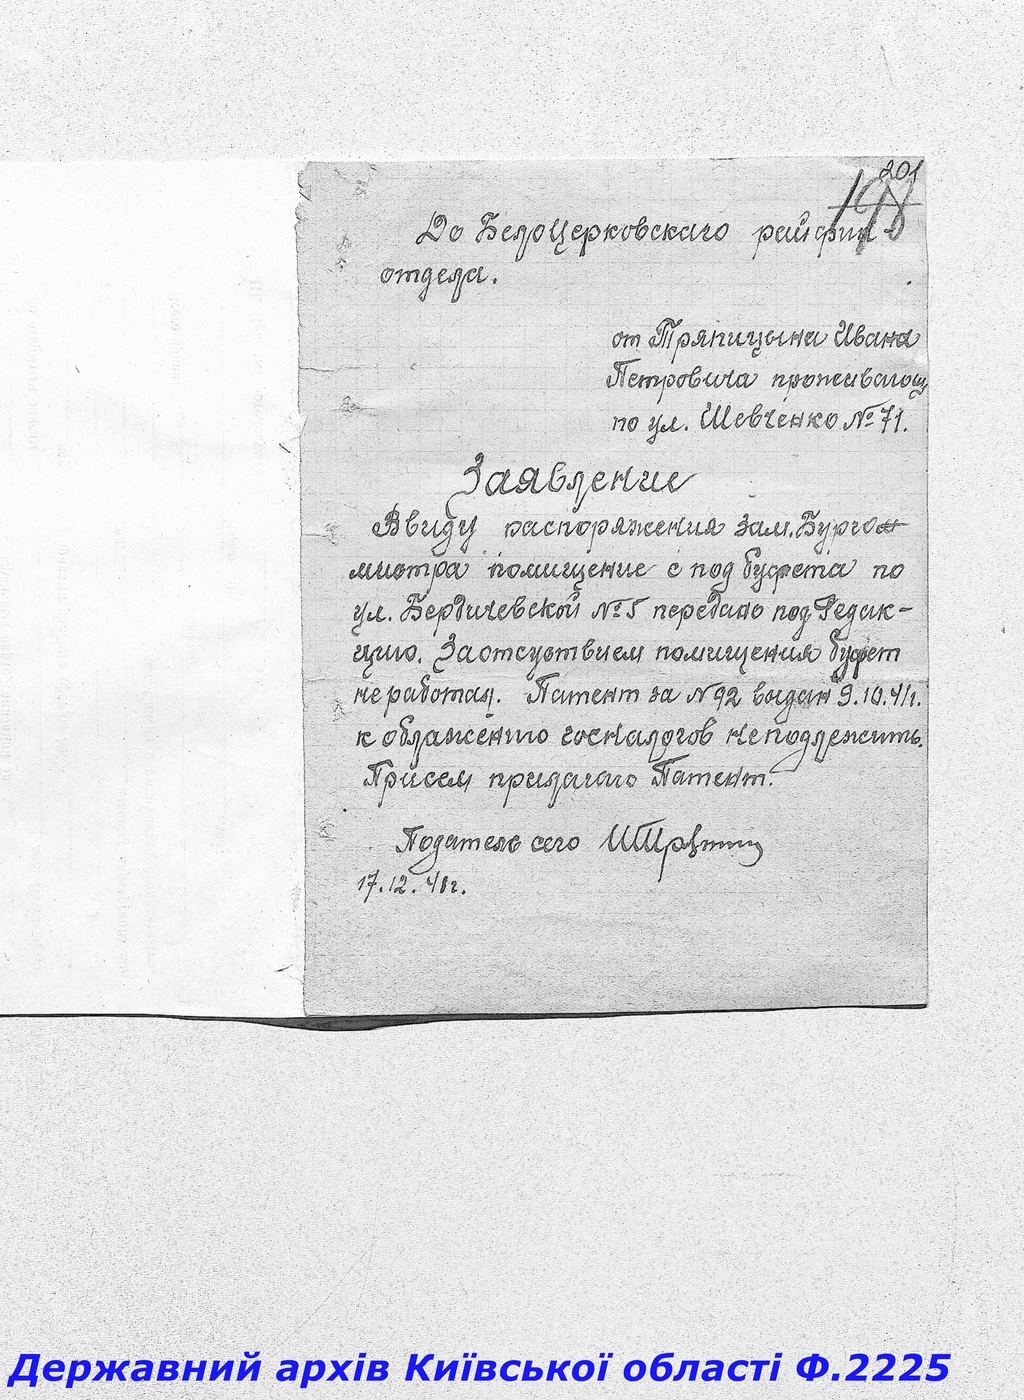 201
198
До Белоцерковскаго райфин-
отдела.
от Тряпицына Ивана
Петровича проживающ
по ул. Шевченко № 71.
Заявление
Ввиду распоряжения зам. Бурго
мистра помищение с под буфета по
ул. Бердичевской № 5 передано под Редак-
цию. Заотсуствием помищения буфет
не работал. Патент за № 92 выдан 9.10.41г.
к облажению госналогов неподлежить.
Присем прилагаю Патент.
Податель сего
17.12.41г.
Державний архів Київської області Ф.2225